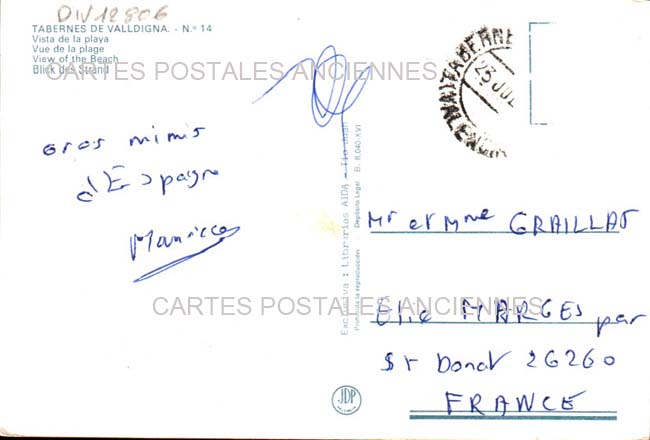 DIV12806
TABERNES DE VALLDIGNA. - N.º 14
Vista de la playa
Vue de la plage
View of the Beach
Blick des Strand
CARTES POSTALES ANCIENNES
TABERNES
VALENCIA
23 JUL
Gros mimis
d'Espagne
Mr et Mme GRAILLAT
MARGES par
St Donat 26260
FRANCE
CARTES POSTALES ANCIENNES
Exclusiva: Librerias AIDA - Tio Juan
Prohibida la reproducción Depósito Legal B. 8.040-XVI
JDP